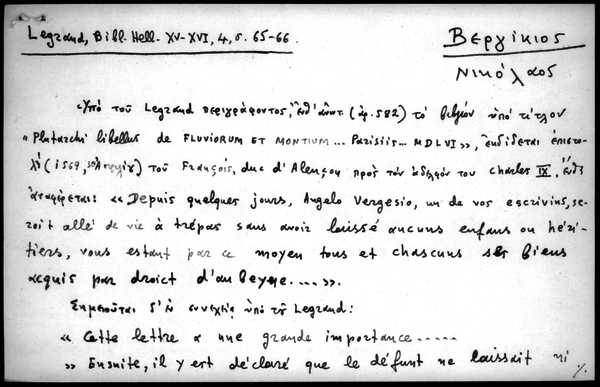 Legrand, Bibl. Hell. XV-XVI, 4, σ. 65-66.
Βεργίκιος
Νικόλαος
Ὑπὸ τοῦ Legrand περιγράφοντος, ἐνθ' ἀνωτ. (ἀρ. 582) τὸ βιβλίον ὑπὸ τίτλον
"Plutarchi libellus de FLUVIORUM ET MONTIUM... Parisiis... MDLVI», ἐκδίδεται ἐπιστο-
λὴ (1569, 30 Ἀπριλίου) τοῦ François, duc d'Alençon πρὸς τὸν ἀδελφόν του Charles IX, ἔνθα
ἀναφέρεται: «Depuis quelques jours, Angelo Vergesio, un de vos escrivins, se-
roit allé de vie à trépas sans avoir laissé aucuns enfans ou héri-
tiers, vous estant par ce moyen tous et chascuns ses biens
acquis par droict d'aubeyne....».
Σημειοῦται δ' ἐν συνεχείᾳ ὑπὸ τοῦ Legrand:
« Cette lettre a une grande importance.....
» Ensuite, il y est déclaré que le défunt ne laissait ni
./.